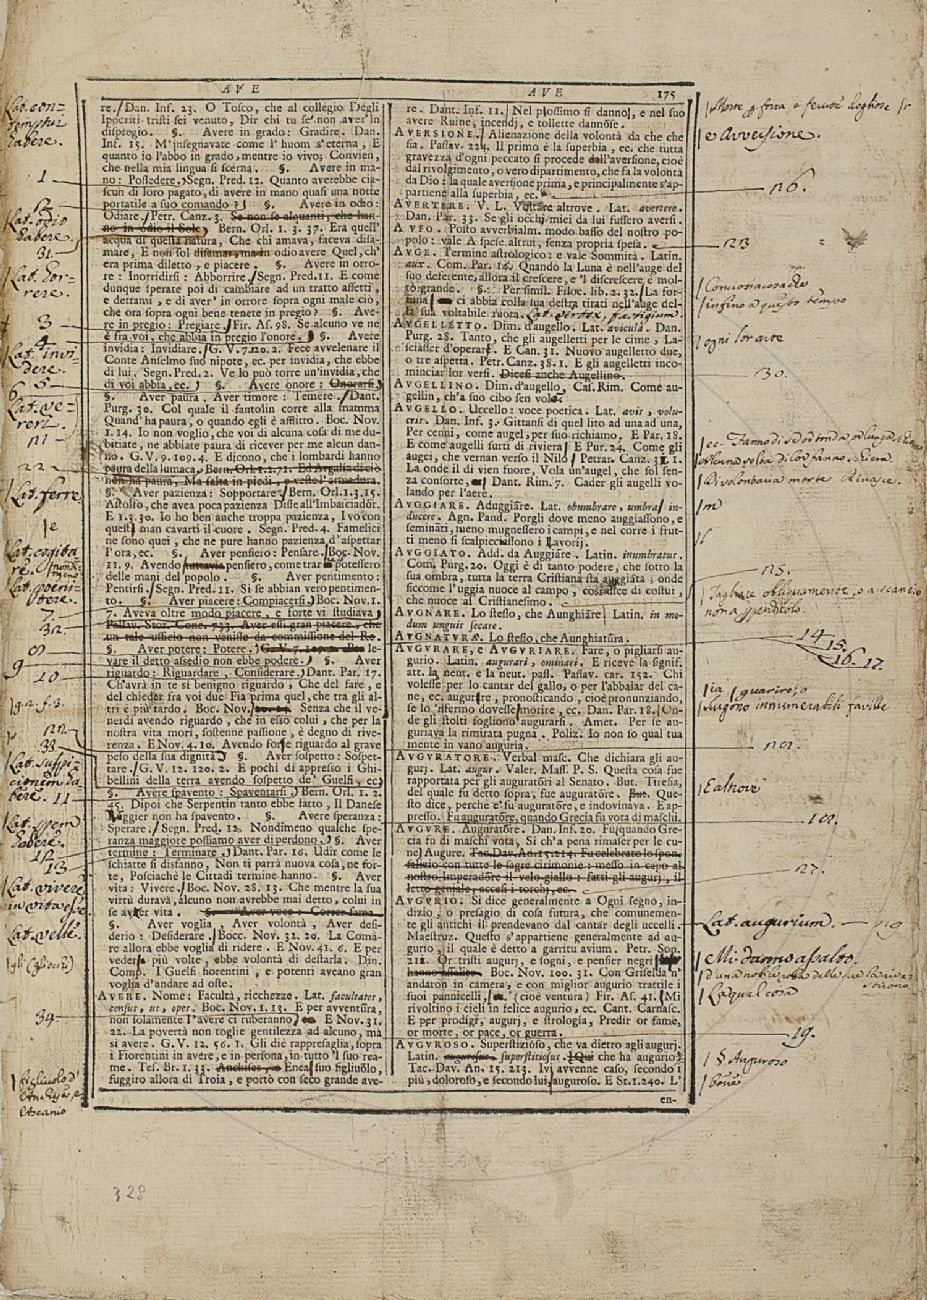 AVE
AVE
175
re. Dan. Inf. 23. O Tosco, che al collegio Degli
Ipocriti tristi sei venuto, Dir chi tu se' non aver in
dispregio. §. Avere in grado: Gradire. Dan.
Inf. 15. M'insegnavate come l'huom s'eterna, E
quanto io l'abbo in grado, mentre io vivo; Convien,
che nella mia lingua si scerna. §. Avere in ma-
no: Possedere. Segn. Pred. 12. Quanto averebbe cia-
scun di loro pagato, di avere in mano quasi una notte
portatile a suo comando? §. Avere in odio:
Odiare. Petr. Canz. 3. Se non se alquanti, che han-
no in odio il Sole. Bern. Orl. 1. 3. 37. Era quell'
acqua di questa natura, Che chi amava, faceva disa-
mare, E non sol disamar, ma in odio avere Quel, ch'
era prima diletto, e piacere. §. Avere in orro-
re: Inorridirsi: Abborrire. Segn. Pred. 11. E come
dunque sperate poi di cambiare ad un tratto affetti,
e dettami, e di aver' in orrore sopra ogni male ciò,
che ora sopra ogni bene tenete in pregio? §. Ave-
re in pregio: Pregiare. Fir. As. 98. Se alcuno ve ne
è fra voi, che abbia in pregio l'onore. §. Avere
invidia: Invidiare. G. V. 7. 120. 2. Fece avvelenare il
Conte Anselmo suo nipote, ec. per invidia, che ebbe
di lui. Segn. Pred. 2. Ve lo può torre un'invidia, che
di voi abbia, ec. §. Avere onore: Onorarsi.
§. Aver paura. Aver timore: Temere. Dant.
Purg. 30. Col quale il fantolin corre alla mamma
Quand'ha paura, o quando egli è afflitto. Boc. Nov.
1. 14. Io non voglio, che voi di alcuna cosa di me du-
bitiate, ne abbiate paura di ricever per me alcun dan-
no. G. V. 9. 109. 4. E dicono, che i lombardi hanno
paura della lumaca. Bern. Orl. 1. 2. 71. Ed Argalia di ciò
non ha paura, Ma salta in piedi, e veste l'armadura.
§. Aver pazienza: Sopportare. Bern. Orl. 1. 3. 15.
Astolfo, che avea poca pazienza Disse all'Imbasciador.
E 1. 3. 30. Io ho ben anche troppa pazienza, I vo con
quest' man cavarti il cuore. Segn. Pred. 4. Famelici
ne sono quei, che ne pure hanno pazienza d'aspettar
l'ora, ec. §. Aver pensiero: Pensare. Boc. Nov.
11. 9. Avendo tuttavia pensiero, come trar potessero
delle mani del popolo. §. Aver pentimento:
Pentirsi. Segn. Pred. 11. Si se abbian vero pentimen-
to. §. Aver piacere: Compiacersi. Boc. Nov. 1.
7. Aveva oltre modo piacere, e forte vi studiava,
Passav. Stor. Conc. 733. Aver essi gran piacere, che
un tale ufficio non venisse da commissione del Re.
§. Aver potere: Potere. G. V. 7. 109. 2. le-
vare il detto assedio non ebbe podere. §. Aver
riguardo: Riguardare, Considerare. Dant. Par. 17.
Ch'avrà in te sì benigno riguardo, Che del fare, e
del chieder fra voi due Fia prima quel, che tra gli al-
tri è più tardo. Boc. Nov. Senza che il ve-
nerdi avendo riguardo, che in esso colui, che per la
nostra vita morì, sostenne passione, è degno di rive-
renza. E Nov. 4. 10. Avendo forse riguardo al grave
peso della sua dignità. §. Aver sospetto: Sospet-
tare. G. V. 12. 120. 2. E pochi di appresso i Ghi-
bellini della terra, avendo sospetto de' Guelfi, ec.
§. Avere spavento: Spaventarsi. Bern. Orl. 1. 2.
45. Dipoi che Serpentin tanto ebbe fatto, Il Danese
Uggier non ha spavento. §. Avere speranza:
Sperare. Segn. Pred. 12. Nondimeno qualche spe-
ranza maggiore possiamo aver di perdono. §. Aver
termine: Terminare. Dant. Par. 16. Udir come le
schiatte si disfanno, Non ti parrà nuova cosa, ne for-
te, Posciachè le Cittadi termine hanno. §. Aver
vita: Vivere. Boc. Nov. 28. 13. Che mentre la sua
virtù durava, alcuno non avrebbe mai detto, colui in
se aver vita. §. Aver voce: Correr fama.
§. Aver voglia, Aver volontà, Aver desi-
derio: Desiderare. Bocc. Nov. 32. 20. La Comà-
re allora ebbe voglia di ridere. E Nov. 41. 6. E per
veder più volte, ebbe volontà di destarla. Din.
Comp. I Guelfi fiorentini, e potenti aveano gran
voglia d'andare ad oste.
AVERE. Nome: Facultà, ricchezze. Lat. facultates,
census, us, opes. Boc. Nov. 1. 13. E per avventura,
non solamente l'avere ci ruberanno, E Nov. 31.
22. La povertà non toglie gentilezza ad alcuno, ma
sì avere. G. V. 12. 56. 1. Gli die rappresaglia, sopra
i Fiorentini in avere, e in persona, in tutto 'l suo rea-
me. Tes. Br. 1. 33. Anchises, e Enea suo figliuòlo,
fuggiro allora di Troia, e portò con seco grande ave-
re. Dant. Inf. 11. Nel prossimo si danno, e nel suo
avere Ruine, incendj, e tollette dannose.
AVERSIONE. Alienazione della volontà da che che
sia. Passav. 224. Il primo è la superbia, ec. che tutta
gravezza d'ogni peccato si procede dall'aversione, cioè
dal rivolgimento, o vero dipartimento, che fa la volontà
da Dio: la quale aversione prima, e principalmente s'ap-
partiene alla superbia, ec.
AVERTERE. V. L. Voltare altrove. Lat. avertere.
Dan. Par. 33. Se gli occhi miei da lui fussero aversi.
A UFO. Posto avverbialm. modo basso del nostro po-
polo: vale A spese altrui, senza propria spesa.
AVGE. Termine astrologico: e vale Sommità. Latin.
aux. Com. Par. 16. Quando la Luna è nell'auge del
suo deferente, allora il crescere, e 'l discrescere è mol-
to grande. §. Per simil. Filoc. lib. 2. 32. La for-
tuna ci abbia colla sua destra tirati nell'auge del-
la sua voltabile ruota. Lat. vertex, fastigium.
AVGELLETTO. Dim. d'augello. Lat. avicula. Dan.
Purg. 28. Tanto, che gli augelletti per le cime, La-
sciasser d'operare. E Can. 31. Nuovo augelletto due,
o tre aspetta. Petr. Canz. 38. 1. E gli augelletti inco-
minciar lor versi. Dicesi anche Augellino.
AVGELLINO. Dim. d'augello, Cas. Rim. Come au-
gellin, ch'a suo cibo sen vola.
AVGELLO. Uccello: voce poetica. Lat. avis, volu-
cris. Dan. Inf. 3. Gittansi di quel lito ad una ad una,
Per cenni, come augel, per suo richiamo. E Par. 18.
E come augelli surti di riviera. E Pur. 24. Come gli
augei, che vernan verso il Nilo. Petrar. Canz. 31. 1.
La onde il dì vien fuore, Vola un'augel, che sol sen-
za consorte, Dant. Rim. 7. Cader gli augelli vo-
lando per l'aere.
AVGGIARE. Aduggiare. Lat. obumbrare, umbras in-
ducere. Agn. Pand. Porgli dove meno auggiassono, e
seminati, meno mugnessero i campi, e nel corre i frut-
ti meno si scalpicciassono i lavorij.
AVGGIATO. Add. da Auggiare. Latin. inumbratus.
Com. Purg. 20. Oggi è di tanto podere, che sotto la
sua ombra, tutta la terra Cristiana sta auggiata; onde
siccome l'uggia nuoce al campo, così dice di costui,
che nuoce al Cristianesimo.
AVGNARE. Lo stesso, che Aunghiare. Latin. in mo-
dum unguis secare.
AVGNATURA. Lo stesso, che Aunghiatura.
AVGURARE, e AVGURIARE. Fare, o pigliarsi au-
gurio. Latin. augurari, ominari. E riceve la signif.
att. la neut. e la neut. pass. Passav. car. 152. Chi
volesse per lo cantar del gallo, o per l'abbaiar del ca-
ne, ec. augurare, pronosticando, cioè pronunziando,
se lo 'nfermo dovesse morire, ec. Dan. Par. 18. On-
de gli stolti sogliono augurarsi. Amet. Per se au-
guriava la rimirata pugna. Poliz. Io non so qual tua
mente in vano auguria.
AVGURATORE. Verbal masc. Che dichiara gli au-
gurj. Lat. augur. Valer. Mass. P. S. Questa cosa fue
rapportata per gli auguratori al Senato. But. Tiresia,
del quale fu detto sopra, fue auguratore. But. Que-
sto dice, perchè e' fu auguratore, e indovinava. E ap-
presso. Fu auguratore, quando Grecia fu vota di maschi.
AVGURE. Auguratore. Dan. Inf. 20. Fu, quando Gre-
cia fu di maschi vota, Sì ch'a pena rimaser per le cu-
ne, Augure. Tac. Dav. An. 15. 214. Fu celebrato lo spon-
salizio con tutte le sagre cirimonie: messo in capo al
nostro Imperadore il velo giallo: fatti gli augurj, il
letto geniale, accesi i torchj, ec.
AVGURIO. Si dice generalmente a Ogni segno, in-
dizio, o presagio di cosa futura, che comunemen-
te gli antichi il prendevano dal cantar degli uccelli.
Maestruz. Questo s'appartiene generalmente ad au-
gurio, il quale è detto a garritu avium. Petr. Son.
211. Or tristi augurj, e sogni, e pensier negri
hanno assalito. Boc. Nov. 100. 31. Con Griselda n'
andaron in camera, e con miglior augurio trattile i
suoi pannicelli, (cioè ventura) Fir. As. 41. Mi
rivoltino i cieli in felice augurio, ec. Cant. Carnasc.
E per prodigi, augurj, e strologia, Predir or fame,
or morte, or pace, or guerra.
AVGUROSO. Superstizioso, che va dietro agli augurj.
Latin. augurosus, superstitiosus. Qui che ha augurio
Tac. Dav. An. 15. 213. Ivi avvenne caso, secondo i
più, doloroso, e secondo lui, auguroso. E St. 1. 240. L'
en-
Lat. con-
temptui
habere.
1
12
Lat. odio
habere.
31
Lat. hor-
rere.
3
4
Lat. invi-
dere.
5
6
Lat. ve-
reri.
22
Lat. ferre
e
7
32
8
9
10
33
Lat. suspi-
cionem ha-
bere.
11
Lat. spem
habere.
12
13
Lat. vivere
in vita esse
Lat. velle.
gli (Gliocchi)
34
figliuolo d'
Anchise, e
Ascanio
e Avversione.
26.
23
Concionacosache
infino a questo tempo
ogni lor arte
30.
m
25.
Tagliare obliquamente, o a scancio
non a ppendicolo.
14
15.
16
17.
Surgono innumerabili faville
E altrove
18.
27.
Lat. augurium.
Mi danno assalto.
La qual cosa
19.
§ Auguroso
bone
328